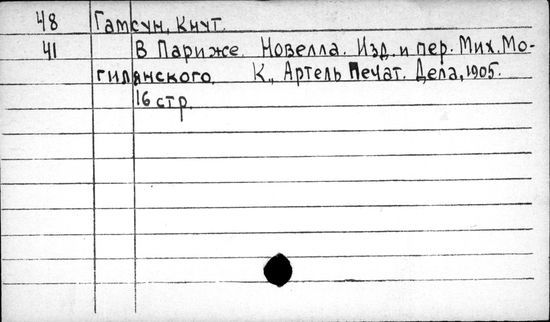 48 Гамсун, Кнут.
41 В Париже. Новелла. Изд. и пер. Мих. Мо-
гилянского. К., Артель Печат. Дела, 1905.
16 стр.